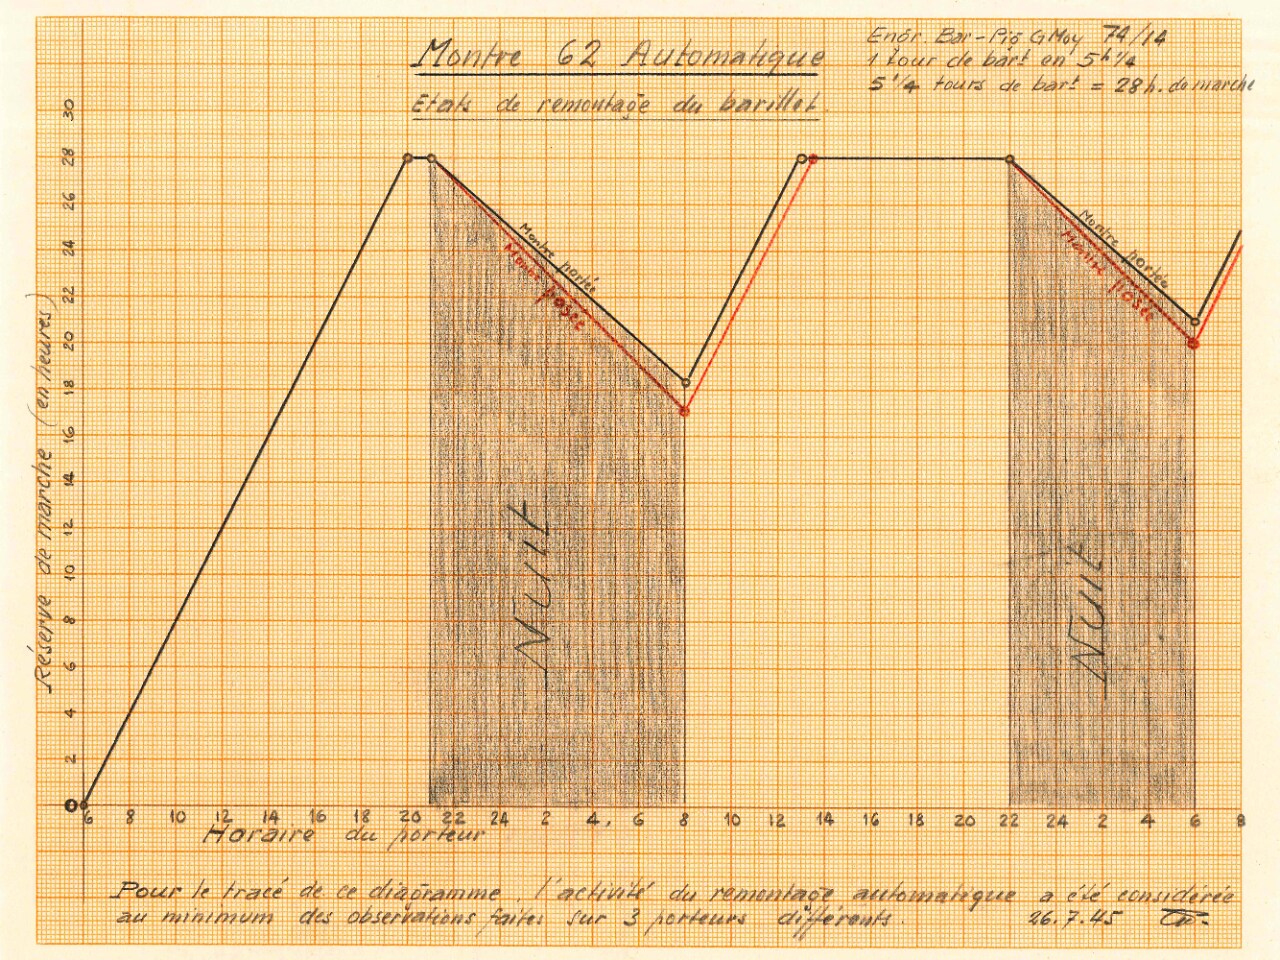 Montre 62 Automatique
Etats de remontage du barillet.
Engr. Bar-Pig GMoy 74/14
1 tour de bart en 5h 1/4
5 1/4 tours de bart = 28 h. de marche
Réserve de marche (en heures)
30
28
26
24
22
20
18
16
14
12
10
8
6
4
2
0
Montre portée
Montre posée
Montre portée
Montre posée
Nuit
Nuit
6 8 10 12 14 16 18 20 22 24 2 4 6 8 10 12 14 16 18 20 22 24 2 4 6 8
Horaire du porteur
Pour le tracé de ce diagramme, l'activité du remontage automatique a été considérée
au minimum des observations faites sur 3 porteurs différents.
26.7.45